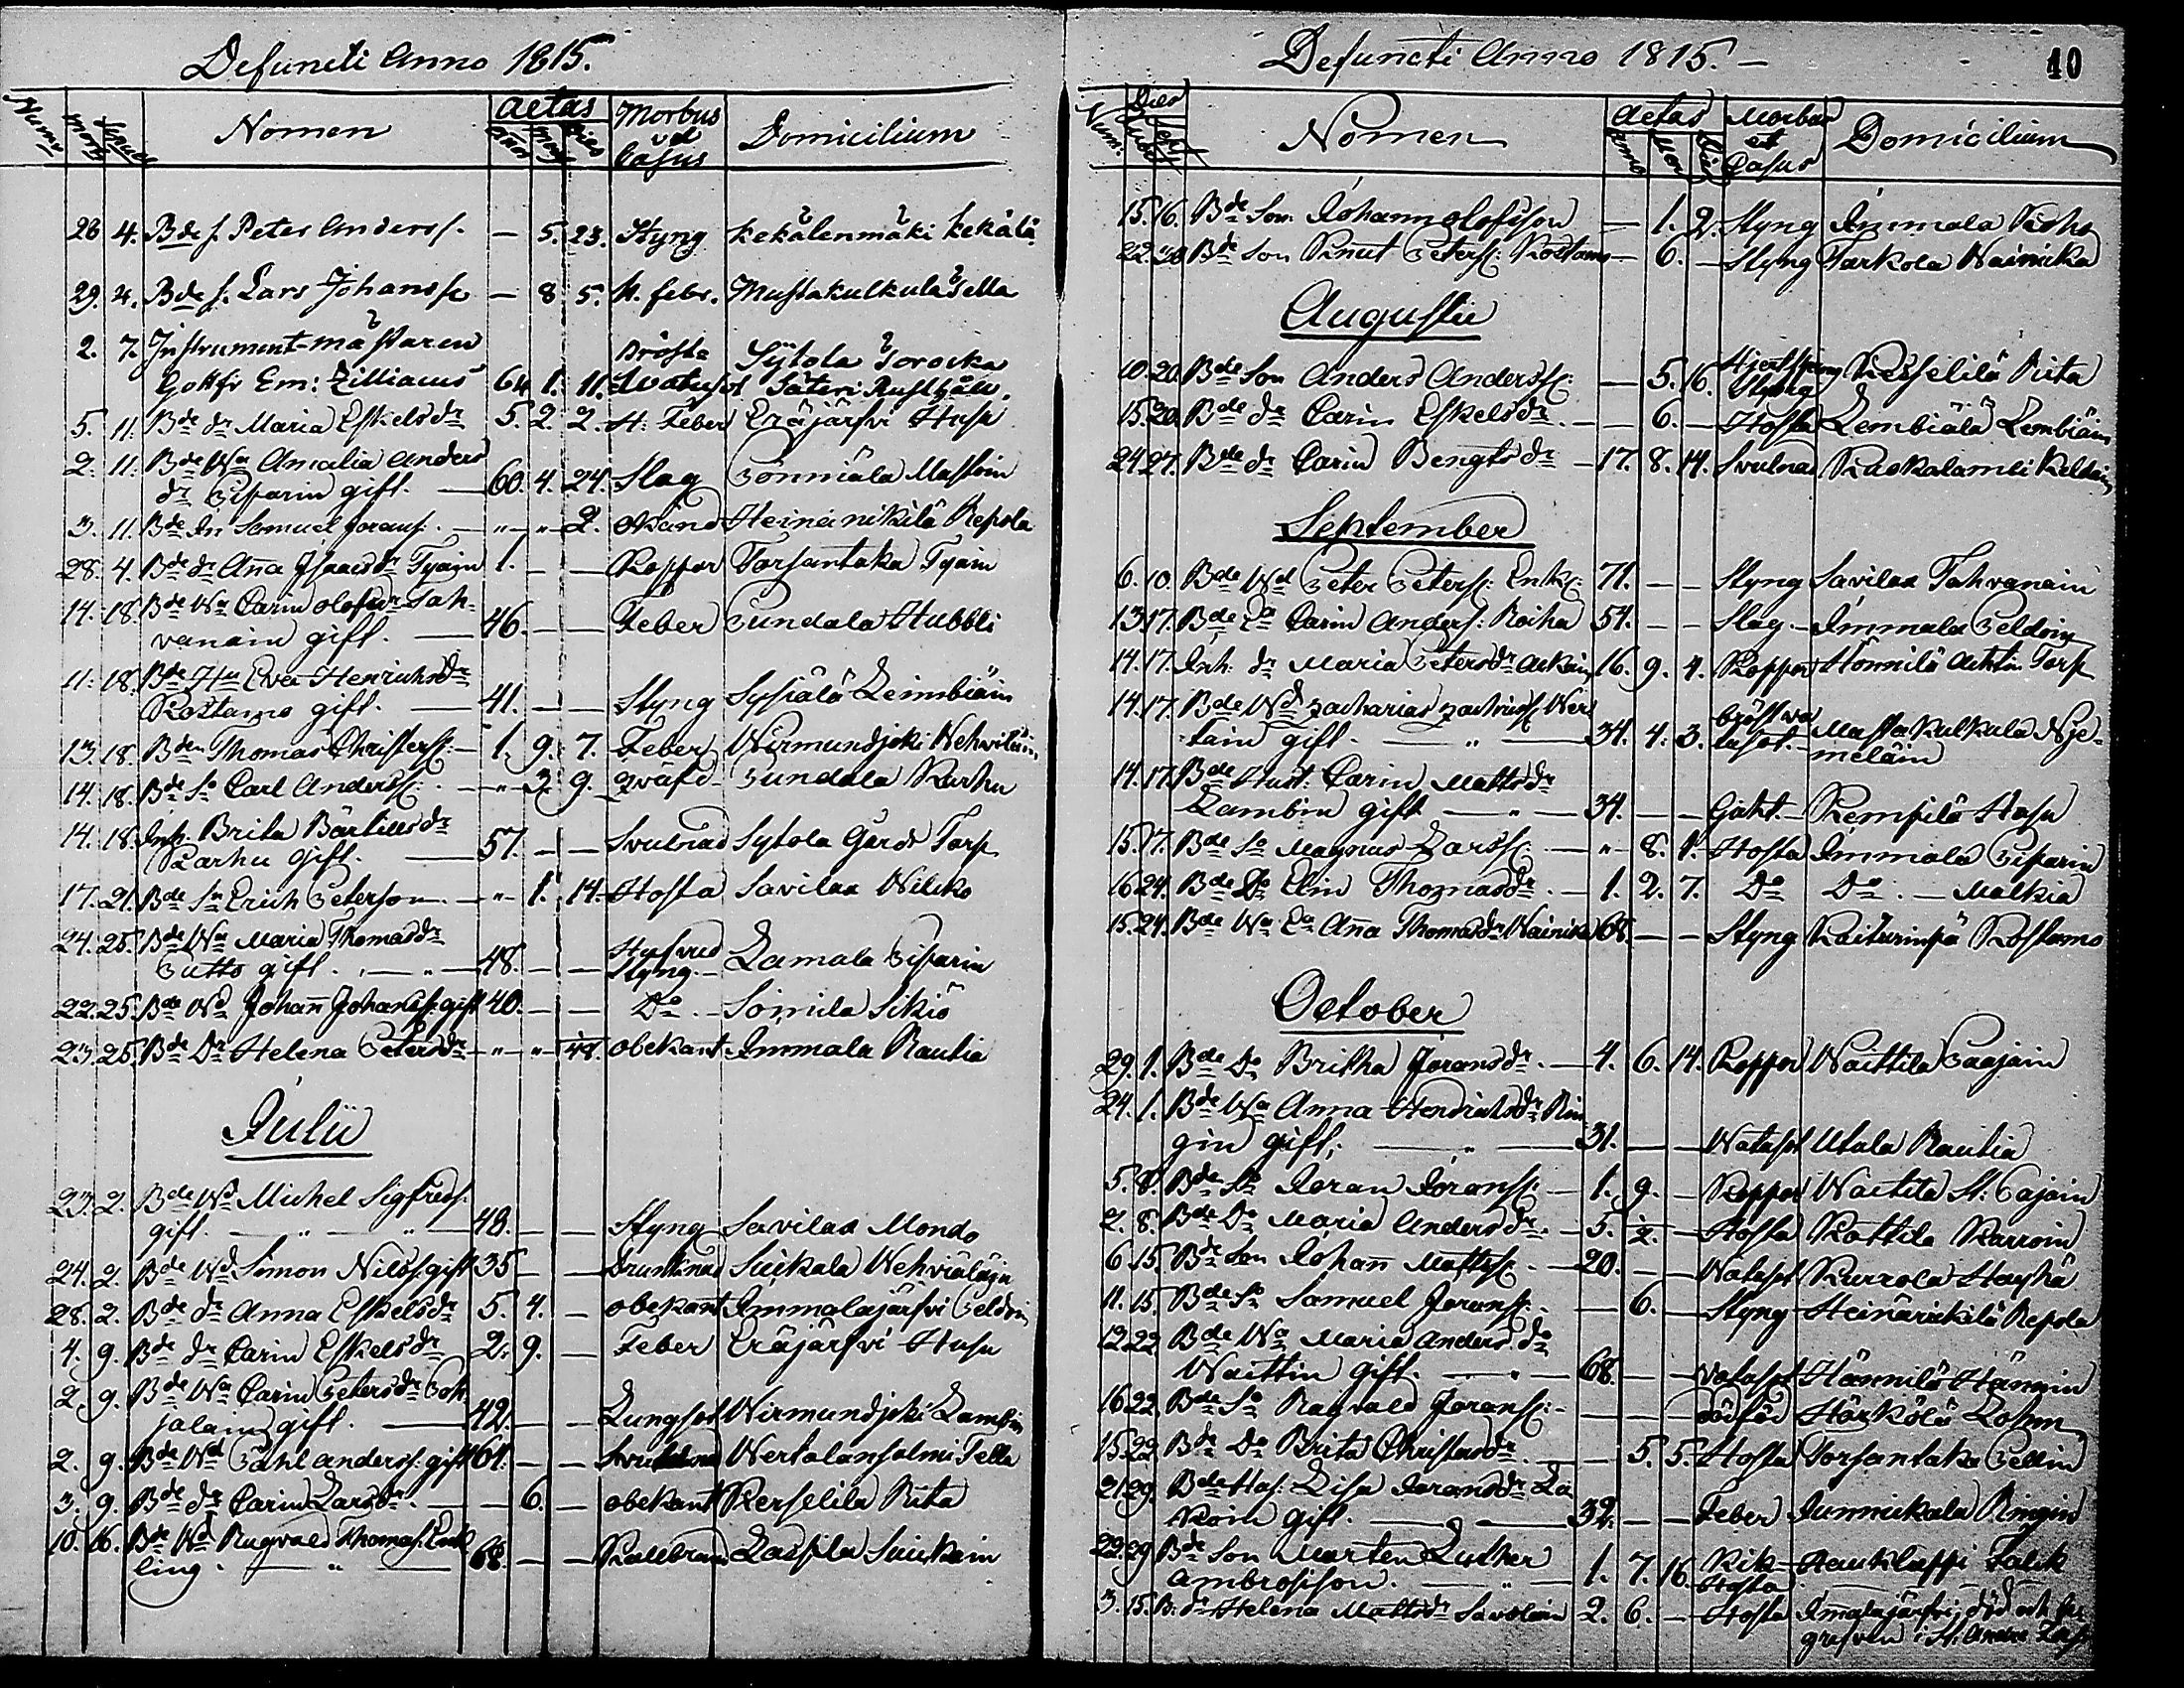 Defuncti Anno 1815.
Num
Mort
Sepult
Nomen
Aetas
Annos
Mens
Dies
Morbus
vel
Casus
Domicilium
28 4. Bde s. Peter Anderss. — 5. 23. Styng Kekälenmäki Kekälä
29. 4. Bde s. Lars Johanss — 8 5. H. feber. Mustakulkula Tella
2. 7. Instrument-mästaren Brösta Sÿtola
Gottfr Em: Zilliacus 64 1. 11. Säteri Rusthåll.
5. 11. Bde dr Maria Eskelsdr 5. 2. 2. H. Feber Eräjärfvi Husu
2. 11. Bde Wa Amalia Anders
dr Piparin gift. — 60. 4. 24. Slag Pönniälä Mastoin
3. 11. Bde Sn Samuel Joranss. — " — " — 2. okänd Heinäinikilä Repola
28. 4. Bde dr Anna Isaacsdr Tyäin 1. — — Koppor Torsantaka Tyäin
14. 18. Bde Wa Carin Olofsdr Tah-
vanain gift. — 46. — — Feber Pundala Hubbli
11. 18. Bde Hu Eva Henrichsdr
Kostamo gift. — 41. — — Styng Sysiälä Leimbiäin
13. 18. Bden Thomas Christerss. — 1. 9. 7. Feber Wirmundjoki Wehviläin
14. 18. Bde So Carl Anderss. — " — 3. 9. qväfd Pundala Karhu
14. 18. Inh. Brita Bärtillsdr
Karhu gift. — 57. — — Svulnad Sytola Gårds Torp
17. 21. Bde Sn Erich Peterson — " — 1. 14. Hosta Savilax Wilcko
24. 25. Bde Wa Maria Thomasdr
Putto gift. — " — 48. — — Hufvud Styng. Lamala Piparin
22. 25. Bde Wd Johan Johanss gift 40. — — Do. — Somila Sikiö
23. 25. Bde Dr Helena Petersdr — " — " — 48. obekant Immala Rautia
Julii
23. 2. Bde Wd Michel Sigfreds.
gift. — " — " — 48. — — Styng Savilax Mondo
24. 2. Bde Wd Simon Nilss. gift 35 — — Drunknad Suikala Wehviäläin
28. 2. Bde dr Anna Eskelsdr 5. 4. — obekant Immalajärfvi Peldoin
4. 9. Bde dr Carin Eskelsdr 2. 9. — Feber Eräjärfvi Husu
2. 9. Bde Wa Carin Petersdr Poh
jalain gift. — 42. — — Lungsot Wirmundjoki Lambin
2. 9. Bde Wd Påhl Anderss. gift 61. — — Wertalansalmi Tella
3. 9. Bde dr Carin Larsdr. — — 6. — obekant Kerselilä Rita
10. 16. Bde Wd Ragvald Thomas. Enck
ling. — " — 68. — — Kallbrand Laispila Suikain
Defuncti Anno 1815. —
10
Num:
Dies
Nomen
Aetas
Annos
Men
Dies
Morbus
et
Casus
Domicilium
15. 16. Bde Son Johan Olofsson — 1. 2. Styng Immala Roiha
22. 30. Bde Son Knut Peterss: Kostamo — 6. — Styng Tarkola Wainicka
Augustii
10. 20. Bde Son Anders Anderss: — 5. 16. Styng Kesselilä Rita
15. 20. Bde dr Carin Eskelsdr. — — 6. — Hosta Lembiälä Lembiäin
24. 27. Bde dr Carin Bengtsdr — 17. 8. 14. Svulnad Kuokalambi Keldain
September
6. 10. Bde Wd Peter Peterss: Enkl: 71. — — Styng Savilax Tahvanain
13. 17. Bde Ea Carin Anders: Roiha 54. — — Slag — Immala Peldoin
14. 17. Inh. dr Maria Petersdr 16. 9. 4. Koppor Hännilä Torp
14. 17. Bde Wd Zacharias Zachriss. Wer
tain gift. — " — 34. 4. 3. bröst wa tusot. — Mustakulkula Nje-
meläin
14. 17. Bde Hust. Carin Mattsdr
Lambin gift — " — 34. — — Gickt — Kempilä Husu
15. 17. Bde So Magnus Larss. — " — 8. 1. Hosta Immala Piparin
16. 24. Bde Do Elin Thomasdr. — 1. 2. 7. Do Do. — Malkia
15. 24. Bde Wa Ea Anna Thomasdr Wainicka 68. — — Styng Raiturinpä Kostamo
October
29. 1. Bde Dr Britha Joransdr. — 4. 6. 14. Koppor Waittila Paajain
24. 1. Bde Wa Anna Hendrichsdr Rin
gin gift; — " — 31. — — Watusot Utula Rautia
5. 8. Bde So Joran Joranss. — 1. 9. — Koppor Waitila St: Pajain
2. 8. Bde Dr Maria Andersdr. — 5. 2. — Hosta Kattila Karroin
6. 15. Bde Son Johan Mattss. — 20. — — Watusot Kurrola Hayhä
11. 15. Bde So Samuel Joranss. — 6. — Styng Heinäinikilä Repola
13. 22. Bde Wa Maria Andersdr
Waittin gift. — " — 68. — — Watusot Hännilä Hännin
16. 22. Bde So Ragvald Joranss: — — — — dödföd Härkölä Lohm
15. 22. Bde Dr Brita Christersdr. — — 5. 5. Hosta Torsantaka Pellin
21. 29. Bde Hus: Lisa Joransdr La
Koin gift. — " — 32. — — Feber Junnickala Ringin
22. 29. Bde Son Mårten Luther
Ambrosison. — " — 1. 7. 16. Kik-hosta Hauklappi Talik
3. 15. B. dr Helena Mattsdr Savolain 2. 6. — Hosta Immalajärfvi, död och be
grafven i St. Andrea